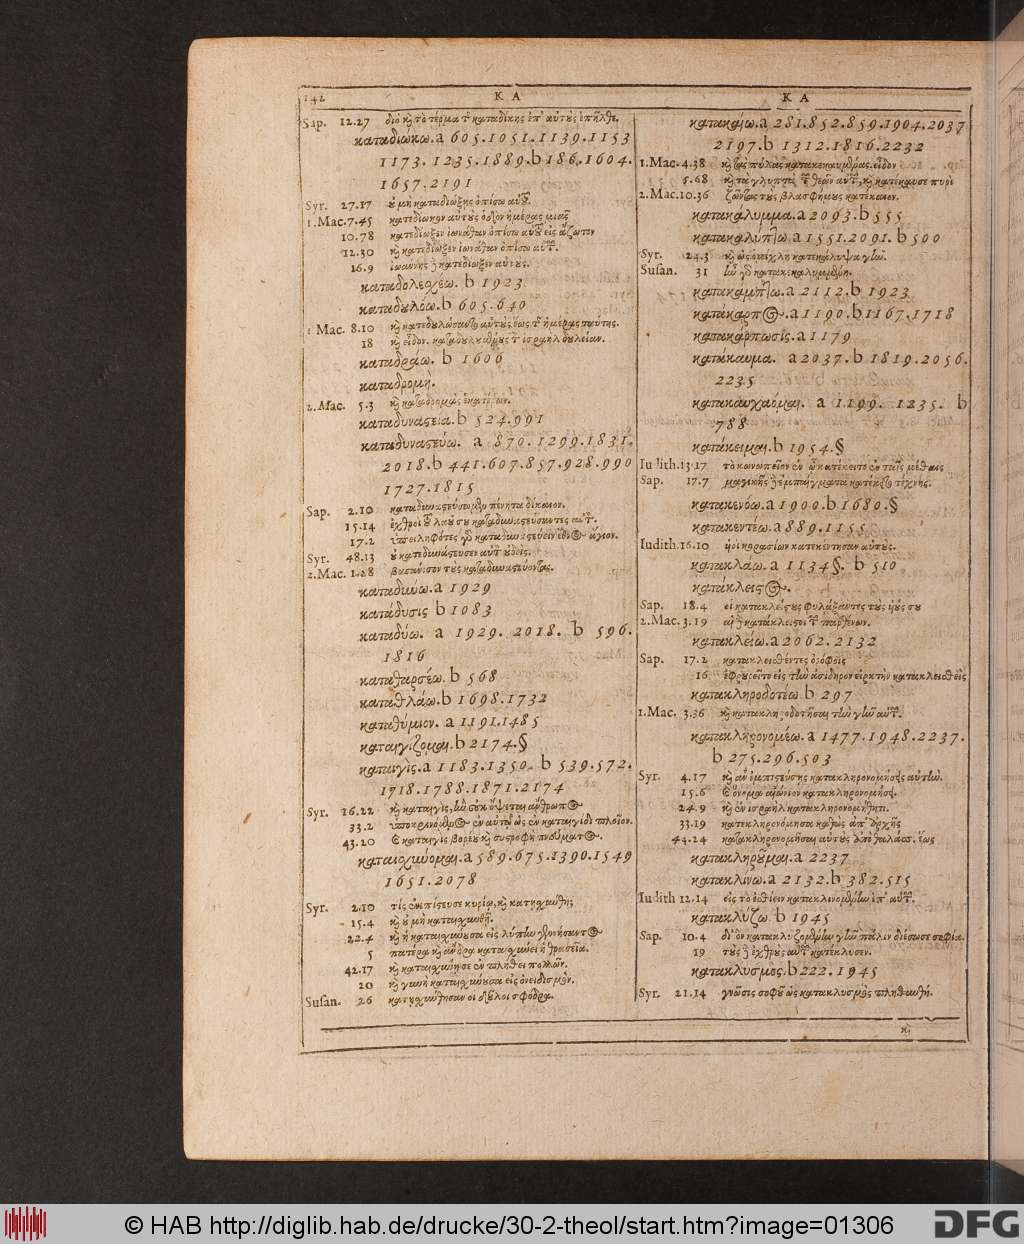 142
K A
K A
Sap. 12.27 διὸ καὶ τὸ τέρμα τῆς καταδίκης ἐπ' αὐτὺς ἐπῆλθε.
καταδιώκω. a 605. 1051. 1139. 1153
1173. 1235. 1889. b 186. 1604.
1657. 2191
Syr. 27.17 οὐ μὴ καταδιώξῃς ὀπίσω αὐτοῦ.
1. Mac. 7.45 κατεδίωκον αὐτοὺς ὁδὸν ἡμέρας μιᾶς
10.78 κατεδίωξεν ἰωνάθαν ὀπίσω αὐτοῦ εἰς ἄζωτον
12.30 καὶ κατεδίωξεν ἰωνάθαν ὀπίσω αὐτῶν.
16.9 ἰωαννης δὲ κατεδίωξεν αὐτούς.
καταδολεσχέω. b 1923
καταδουλόω. b 605. 640
1 Mac. 8.10 καὶ κατεδουλώσαντο αὐτοὺς ἕως τῆς ἡμέρας ταύτης.
18
καταδράω. b 1606
καταδρομή.
2. Mac. 5.3
καταδυναστεία. b 524. 991
καταδυναστεύω. a 870. 1299. 1831.
2018. b 441. 607. 857. 928. 990
1727. 1815
Sap. 2.10 καταδυναστεύσωμεν πένητα δίκαιον.
15.14 ἐχθροὶ τοῦ λαοῦ σου καταδυναστεύσαντες αὐτόν.
17.2 ὑπειληφότες γὰρ καταδυναστεύειν ἔθνος ἅγιον.
Syr. 48.13 οὐ κατεδυνάστευσεν αὐτὸν οὐδείς.
2. Mac. 1.28 βασάνισον τοὺς καταδυναστεύοντας.
καταδύνω. a 1929
κατάδυσις b 1083
καταδύω. a 1929. 2018. b 596.
1816
καταθαρσέω. b 568
καταθλάω. b 1698. 1732
καταθύμιον. a 1191. 1485
καταιγίζομαι. b 2174. §
καταιγὶς. a 1183. 1350. b 539. 572.
1718. 1788. 1871. 2174
Syr. 16.22 καὶ καταιγὶς, ἣν οὐκ ὄψεται ἄνθρωπος
33.2 ὑποκρινόμενος ἐν αὐτῷ ὡς ἐν καταιγίδι πλοῖον.
43.20 καὶ καταιγὶς βορέου καὶ συστροφὴ πνεύματος.
καταισχύνομαι. a 589. 675. 1390. 1549
1651. 2078
Syr. 2.10 τίς ἐνεπίστευσε κυρίῳ, καὶ κατῃσχύνθη;
15.4 καὶ οὐ μὴ καταισχυνθῇ.
22.4 καὶ ἡ καταισχύνουσα εἰς λύπην γεννήσαντος
5 πατέρα καὶ ἄνδρα καταισχύνει ἡ θρασεῖα.
42.17 καὶ καταισχύνῃ σε ἐν πλήθει πολλῶν.
20 καὶ γυνὴ καταισχύνουσα εἰς ὀνειδισμόν.
Susan. 26 κατῃσχύνθησαν οἱ δοῦλοι σφόδρα.
κατακαίω. a 281. 852. 859. 1904. 2037
2197. b 1312. 1816. 2232
1. Mac. 4.38 καὶ τὰς πύλας κατακεκαυμένας. εἶδον
5.68 καὶ τὰ γλυπτὰ τῶν θεῶν αὐτῶν, καὶ κατέκαυσε πυρὶ
2. Mac. 10.36 ζῶντας τοὺς βλασφήμους κατέκαιον.
κατακάλυμμα. a 2093. b 555
κατακαλύπτω. a 1551. 2091. b 500
Syr. 24.3 καὶ ὡς ὁμίχλη κατεκάλυψα γῆν.
Susan. 31 ἦν γὰρ κατακεκαλυμμένη.
κατακάμπτω. a 2112. b 1923
κατάκαρπος. a 1190. b 1167. 1718
κατακάρπωσις. a 1179
κατάκαυμα. a 2037. b 1819. 2056.
2235
κατακαυχάομαι. a 1199. 1235. b
788
κατάκειμαι. b 1954. §
Iudith. 13.17 τὸ κωνωπεῖον ἐν ᾧ κατέκειτο ἐν ταῖς μέθαις
Sap. 17.7 μαγικῆς δὲ ἐμπαίγματα κατέκειτο τέχνης.
κατακενόω. a 1900. b 1680. §
κατακεντέω. a 889. 1155
Iudith. 16.10 υἱοὶ κορασίων κατεκέντησαν αὐτούς.
κατακλάω. a 1134 §. b 510
κατάκλειστος.
Sap. 18.4 οἱ κατακλείστους φυλάξαντες τοὺς υἱούς σου
2. Mac. 3.19 αἱ δὲ κατάκλειστοι τῶν παρθένων.
κατακλείω. a 2062. 2132
Sap. 17.2 κατακλεισθέντες ὀρόφοις
16 ἐφρουρεῖτο εἰς τὴν ἀσίδηρον εἱρκτὴν κατακλεισθείς
κατακληροδοτέω b 297
1. Mac. 3.36 καὶ κατακληροδοτῆσαι τὴν γῆν αὐτῶν.
κατακληρονομέω. a 1477. 1948. 2237.
b 275. 296. 503
Syr. 4.17 κατακληρονομήσεις αὐτήν.
15.6 καὶ ὄνομα αἰώνιον κατακληρονομήσῃ.
24.9 καὶ ἐν ισραὴλ κατακληρονομήθητι.
33.19 κατεκληρονόμησα καθὼς ἀπ' ἀρχῆς
44.24 κατακληρονομῆσαι αὐτοὺς ἀπὸ θαλάσσης ἕως
κατακληροῦμαι. a 2237
κατακλίνω. a 2132. b 382. 515
Iudith 12.14 εἰς τὸ ἐσθίειν κατακλινομένην ἐπ' αὐτῶν.
κατακλύζω. b 1945
Sap. 10.4 δι' ὃν κατακλυζομένην γῆν πάλιν διέσωσε σοφία.
19 τοὺς δὲ ἐχθροὺς αὐτῶν κατέκλυσεν.
κατακλυσμὸς. b 222. 1945
Syr. 21.14 γνῶσις σοφοῦ ὡς κατακλυσμὸς πληθυνθή.
καὶ
© HAB http://diglib.hab.de/drucke/30-2-theol/start.htm?image=01306
DFG